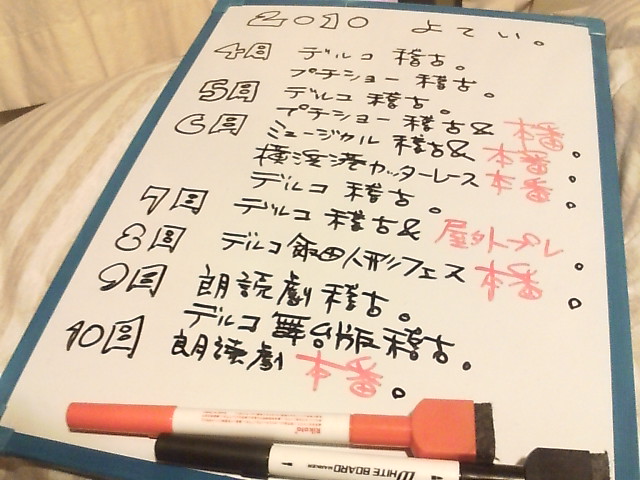 2010 よてい。
4月 デルコ 稽古。
プチショー 稽古。
5月 デルコ 稽古。
プチショー 稽古& 本番。
6月 ミュージカル 稽古& 本番。
横浜港カッターレース 本番。
デルコ 稽古。
7月 デルコ 稽古& 屋外プレ。
8月 デルコ飯田人形フェス 本番。
9月 朗読劇 稽古。
デルコ 舞台版 稽古。
10月 朗読劇 本番。
Kikuto
WHITE BOARD MARKER